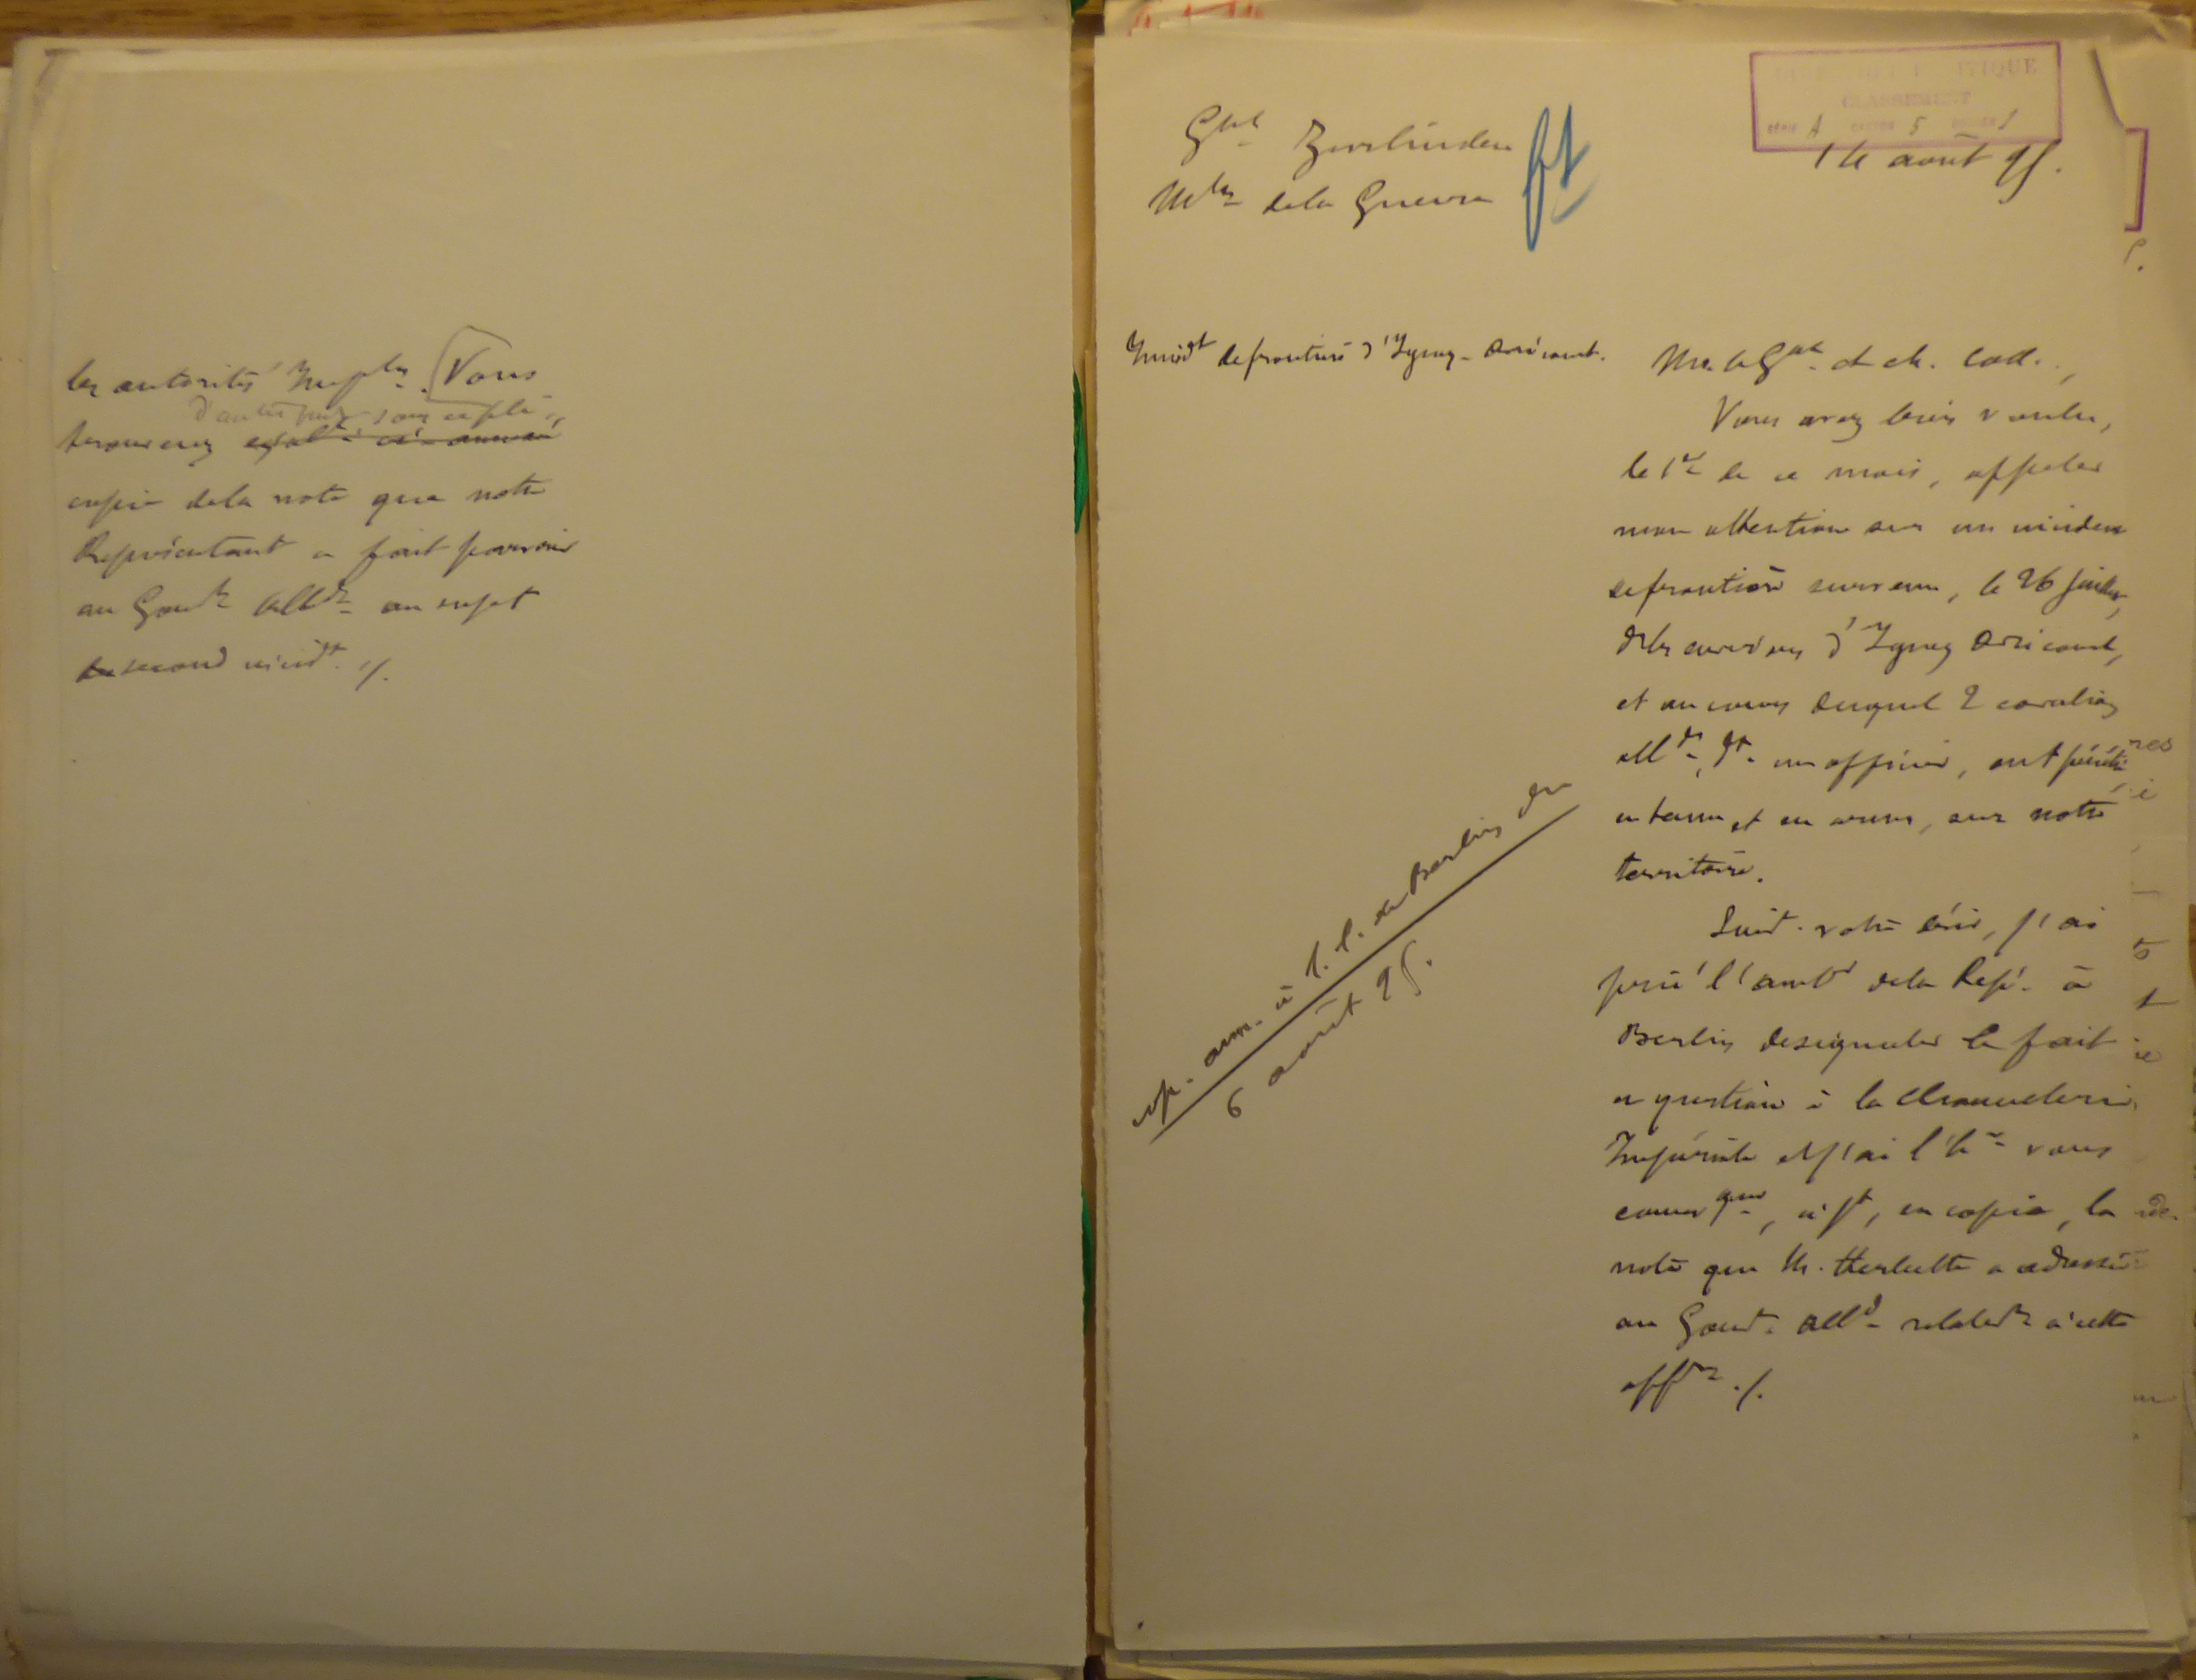 les autorités Imples. Vous
d'autre part sous ce pli
trouverez égalt ci-annexé
copie de la note que notre
Représentant a fait parvenir
au Gouvt Alld au sujet
du second incidt ./.
DIRECTION POLITIQUE
CLASSEMENT
SÉRIE A CARTON 5 DOSSIER 1
Gal Zurlinden
Mtre de la Guerre
14 août 95.
Incidt de frontière d'Igney-Avricourt.
M. le Gal et ch. Coll.,
Vous avez bien voulu,
le 1er de ce mois, appeler
mon attention sur un incident
de frontière survenu, le 26 juillet,
d'Igney Avricourt,
et au cours duquel 2 cavaliers
allds, dt un officier, ont pénétré,
en tenue et en armes, sur notre
territoire.
Suivt votre désir, j'ai
prié l'ambr de la Rép. à
Berlin de signaler le fait
en question à la Chancellerie
Impériale et j'ai l'hr vous
commquer, ci-jt, en copie, la
note que M. Herbette a adressée
au Gouvt Alld relatvt à cette
affre ./.
cop. ann. à l. l. de Berlin du
6 août 95.